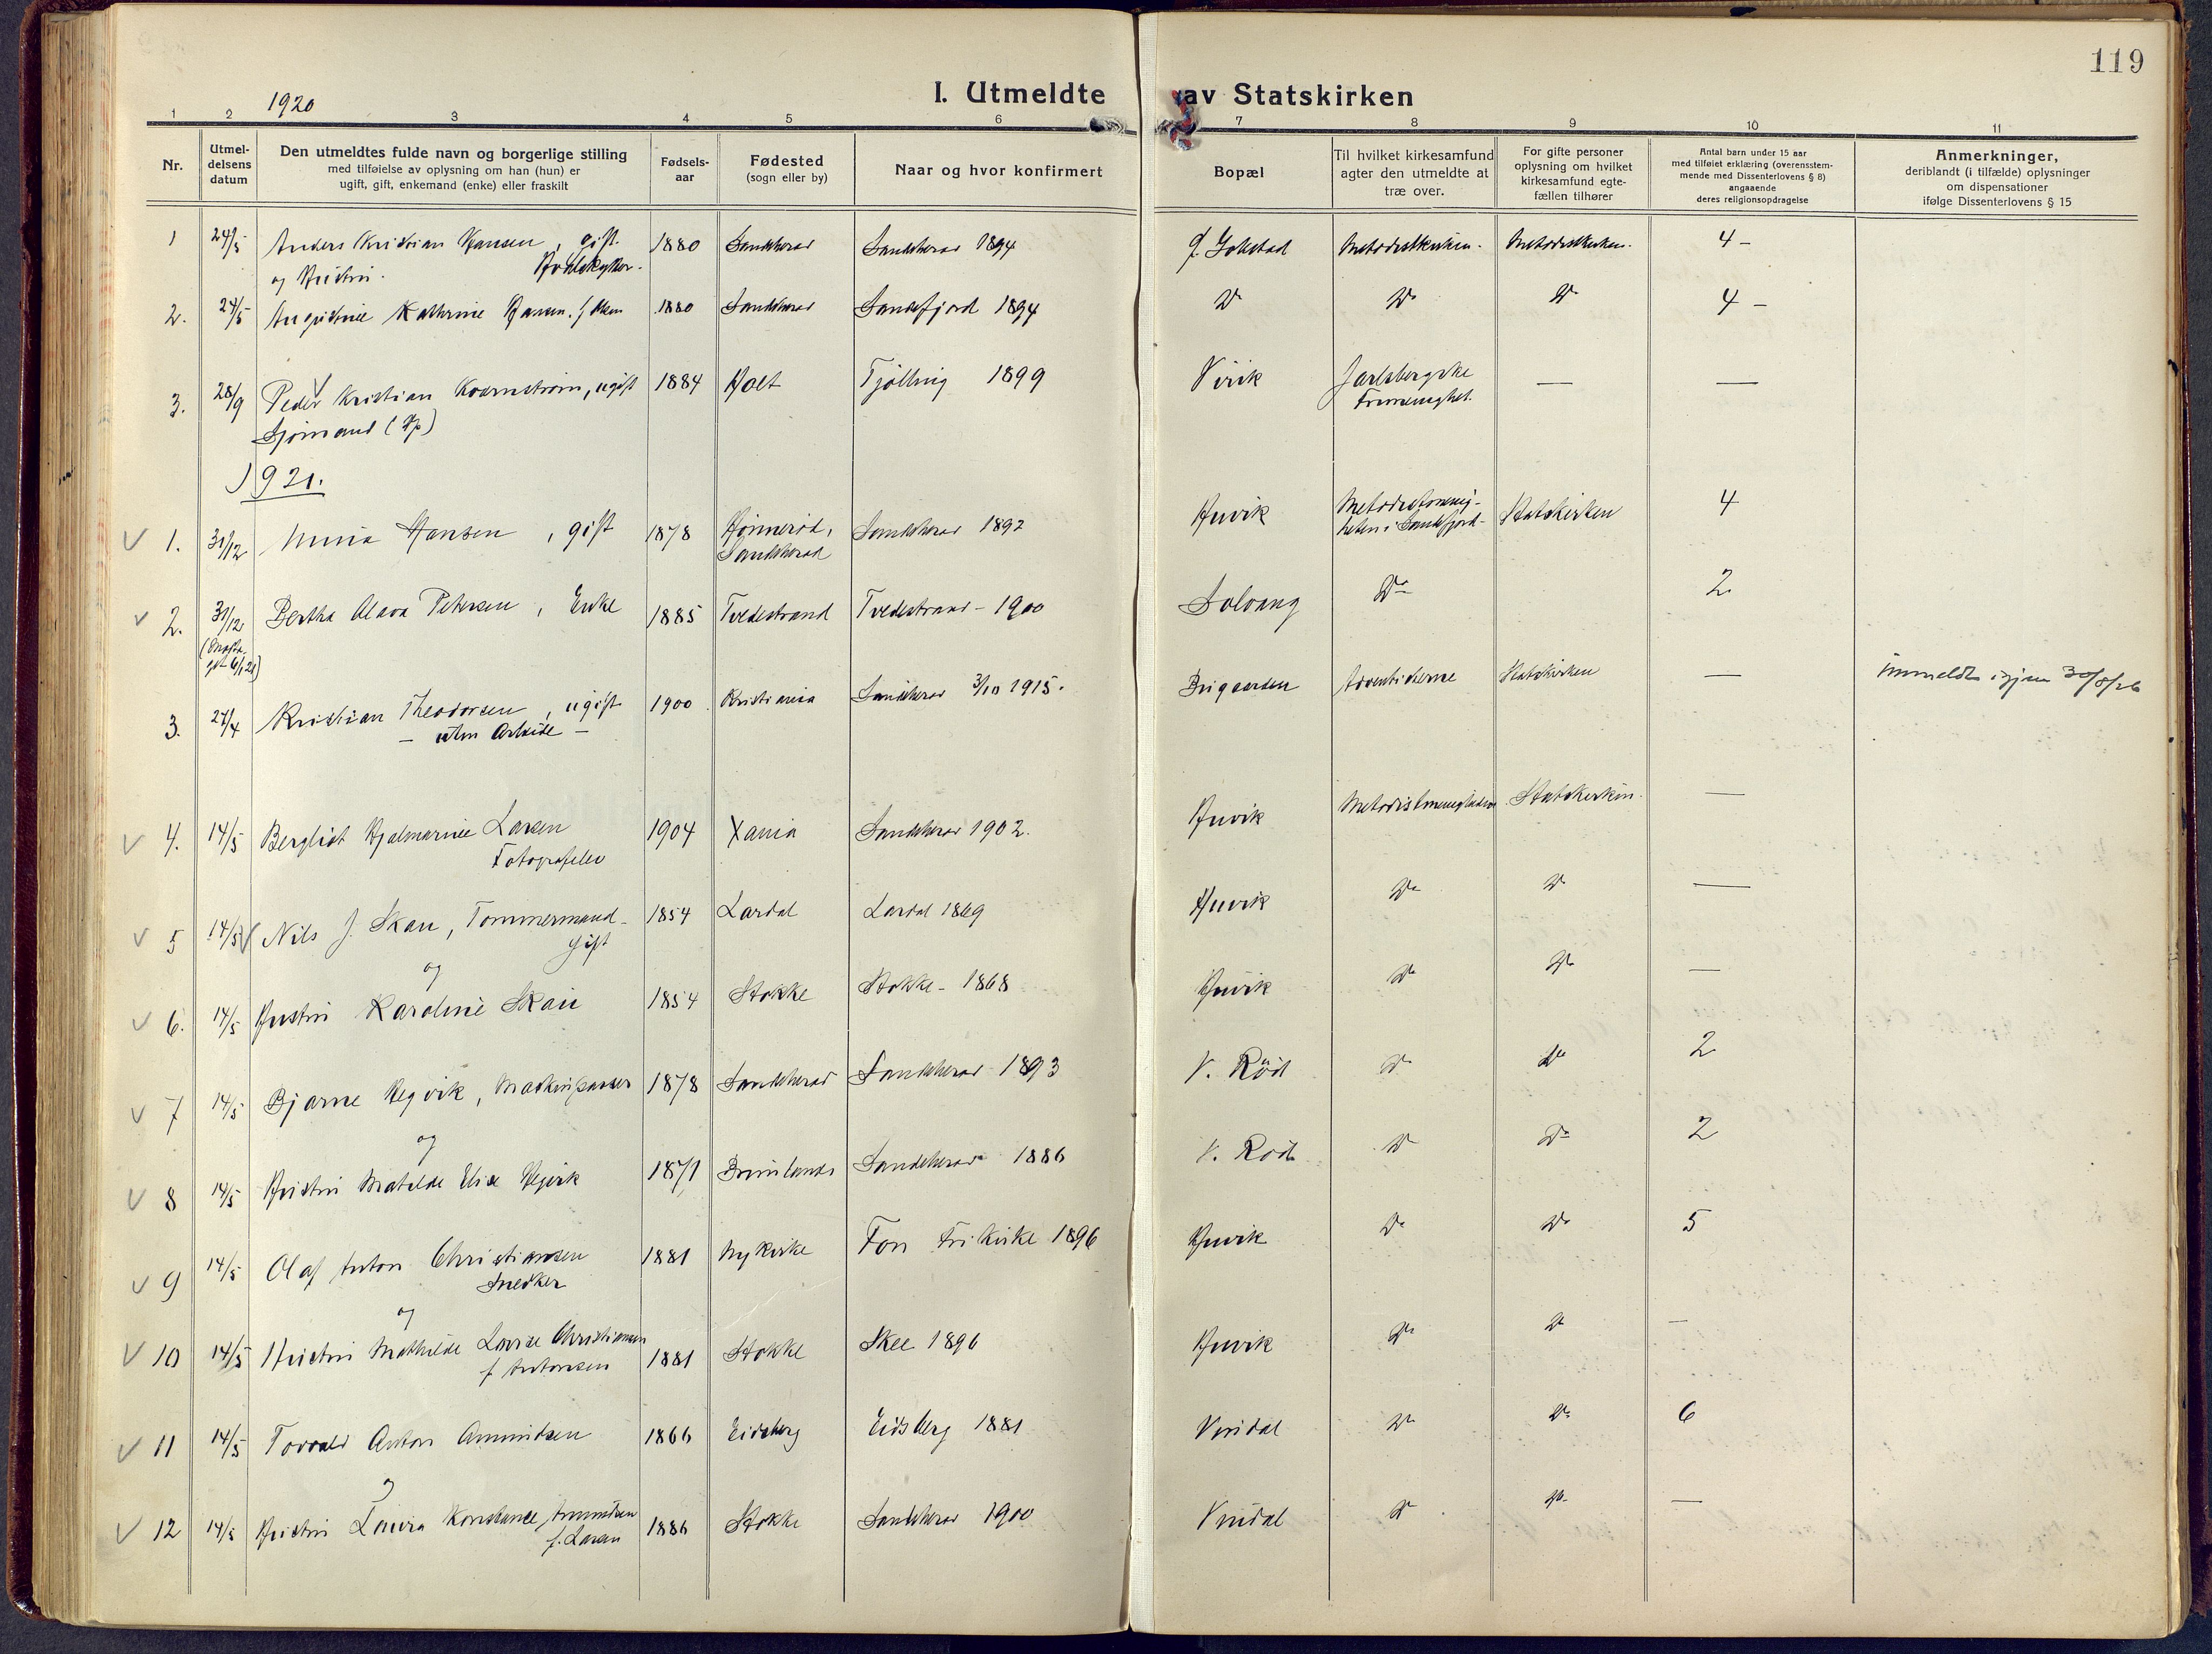 119
I. Utmeldte av Statskirken
1920
1 2 3 4 5 6 7 8 9 10 11
Nr.
Utmel-
delsens
datum
Den utmeldtes fulde navn og borgerlige stilling
med tilføielse av oplysning om han (hun) er
ugift, gift, enkemand (enke) eller fraskilt
Fødsels-
aar
Fødested
(sogn eller by)
Naar og hvor konfirmert
Bopæl
Til hvilket kirkesamfund
agter den utmeldte at
træ over.
For gifte personer
oplysning om hvilket
kirkesamfund egte-
fællen tilhører
Antal barn under 15 aar
med tilføiet erklæring (overensstem-
mende med Dissenterlovens § 8)
angaaende
deres religionsopdragelse
Anmerkninger,
deriblandt (i tilfælde) oplysninger
om dispensationer
ifølge Dissenterlovens § 15
1 24/5 Anders Kristian Hansen, gift. 1880 Sandeherad Sandeherad 1894 Metodistkirken. Metodistkirken. 4 -
og Hustru.
2. 24/5 Kathrine Hansen. f. Olsen 1880 Sandeherad Sandefjord 1894 Do Do Do 4 -
3. 28/9 Peder Kristian Kvarnstrøm, ugift 1884 Holt Tjølling 1899 Virik Jarlsbergske — —
Frimenighet.
Sjømand
1921.
1. 31/12 Hansen, gift 1878 Sandeherad 1892 Metodistmenig- Statskirken 4
Sandeherad heten i Sandefjord -
2. 31/12 Bertha Petersen, Enke 1885 Tvedestrand Tvedestrand - 1900 Solvang Do 2
3. 27/4 Kristian Theodorsen, ugift 1900 Kristiania Sandeherad 3/10 1915. Adventisterne Statskirken — Innmeldt igjen 30/8/26
- uten Arbeide -
4. 14/5 Bergliot Hjalmarine Larsen 1904 Xania Sandeherad 1902. Statskirken. —
Fotografelev
5 14/5 Nils J. Skau, Tømmermand - 1854 Lardal Lardal 1869 Do Do —
gift
og
6. 14/5 Hustru Karoline Skau 1854 Stokke Stokke - 1868 Do Do —
7 14/5 Bjarne Hegvik, Maskinpasser 1878 Sandeherad Sandeherad 1893 V. Röd Do Do 2
og
8 14/5 Hustru Matilde Elise Hegvik 1871 Brunlanes Sandeherad 1886 V. Röd Do Do 2
9 14/5 Olaf Anton Christiansen 1881 Nykirke Fon Frikirke 1896 Do Do 5
Snedker
og
10 14/5 Hustru Mathilde Lovise Christiansen 1881 Stokke Skee 1896 Do Do —
f. Antonsen
11 14/5 Torvald Anton Amundsen 1866 Eidsberg Eidsberg 1881 Viridal Do Do 6
og
12 14/5 Hustru Lovisa Konstance Amundsen 1886 Stokke Sandeherad 1900 Viridal Do Do —
f. Larsen